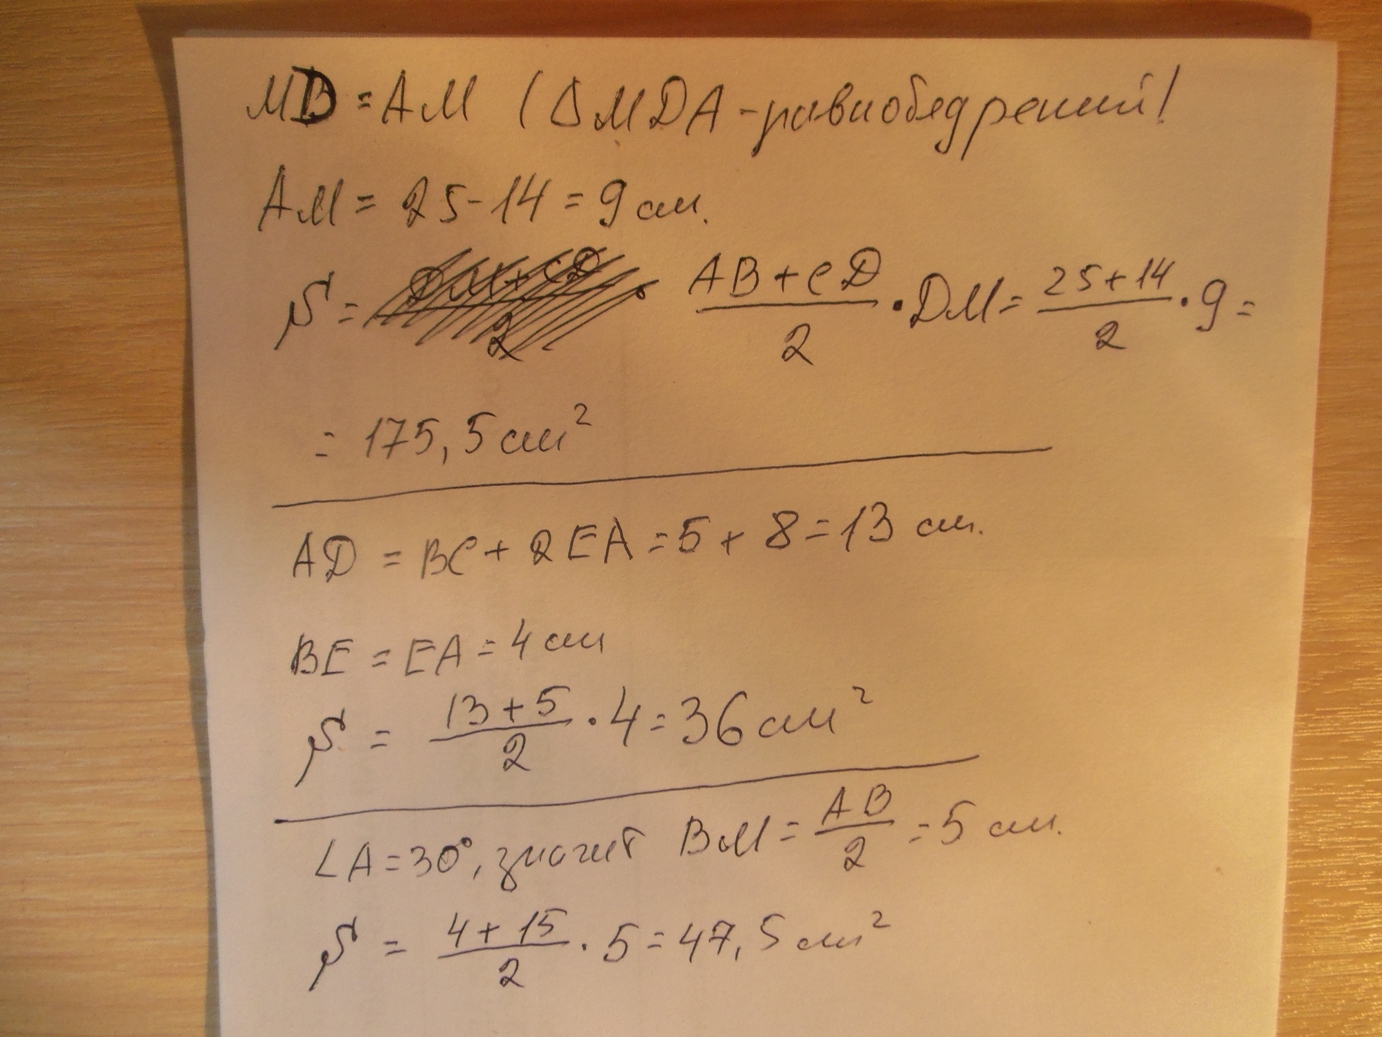 MD = AM (ΔMDA - равнобедренный)
AM = 25-14 = 9 см.
S = (AB + CD)/2 · DM = (25+14)/2 · 9 =
= 175,5 см²
AD = BC + 2EA = 5 + 8 = 13 см.
BE = EA = 4 см
S = (13+5)/2 · 4 = 36 см²
∠A = 30°, значит BM = AB/2 = 5 см.
S = (4+15)/2 · 5 = 47,5 см²